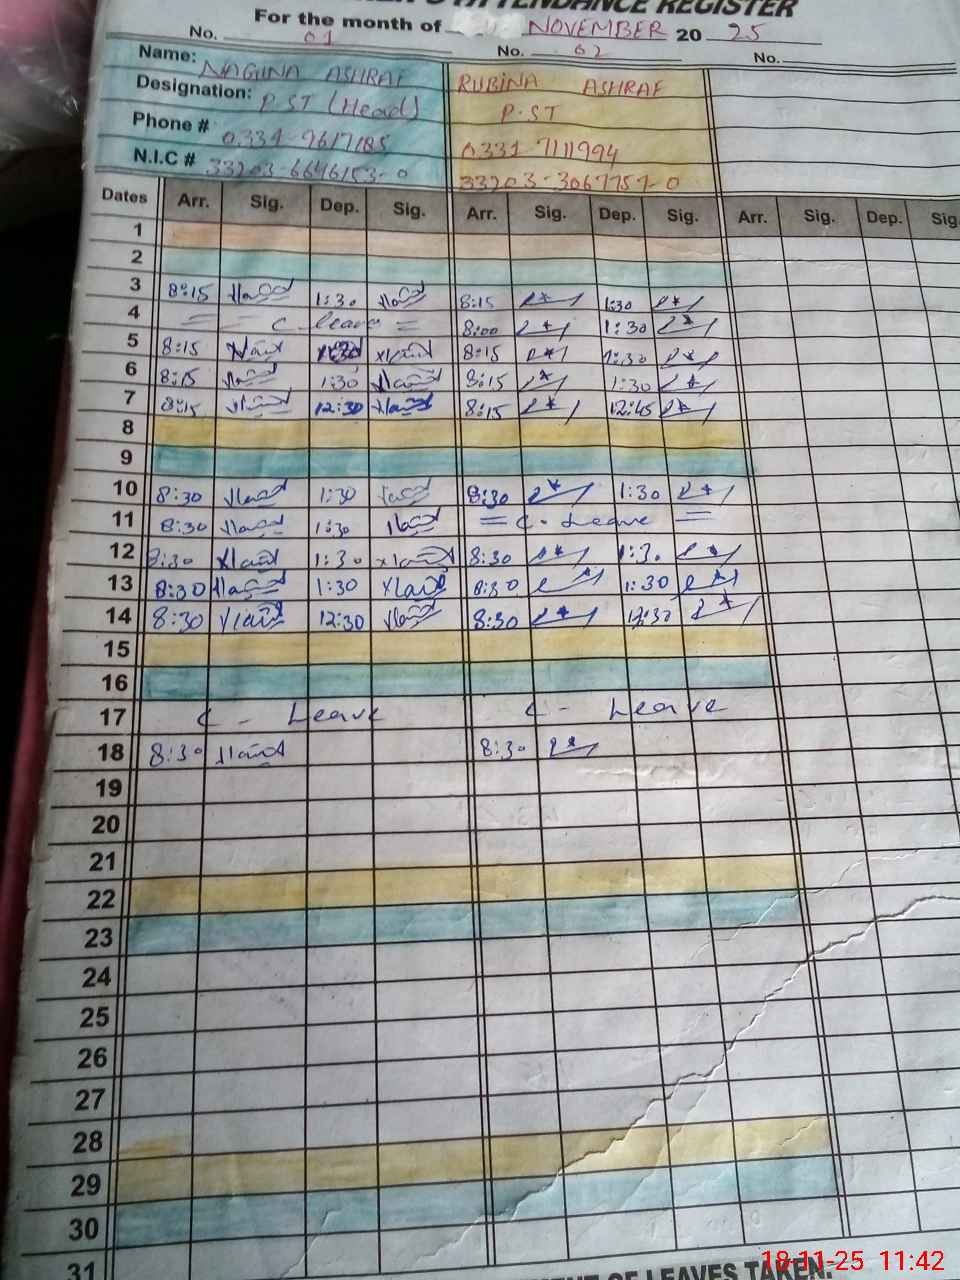 ATTENDANCE REGISTER
For the month of NOVEMBER 20 25
No. 01 No. 02 No.
Name: NAGINA ASHRAF RUBINA ASHRAF
Designation: P.ST (Head) P.ST
Phone # 0331-7111994
N.I.C #
Dates Arr. Sig. Dep. Sig. Arr. Sig. Dep. Sig. Arr. Sig. Dep. Sig.
1
2
3 8:15 1:30 8:15 1:30
4 = = C leave = 8:00 1:30
5 8:15 1:30 8:15 1:30
6 8:15 1:30 8:15 1:30
7 8:15 12:30 8:15 12:45
8
9
10 8:30 1:30 8:30 1:30
11 8:30 1:30 = C - Leave =
12 8:30 1:30 8:30 1:30
13 8:30 1:30 8:30 1:30
14 8:30 12:30 8:30 12:30
15
16
17 C - Leave C - Leave
18 8:30 8:30
19
20
21
22
23
24
25
26
27
28
29
30
31
OF LEAVES TAKEN.
18-11-25 11:42